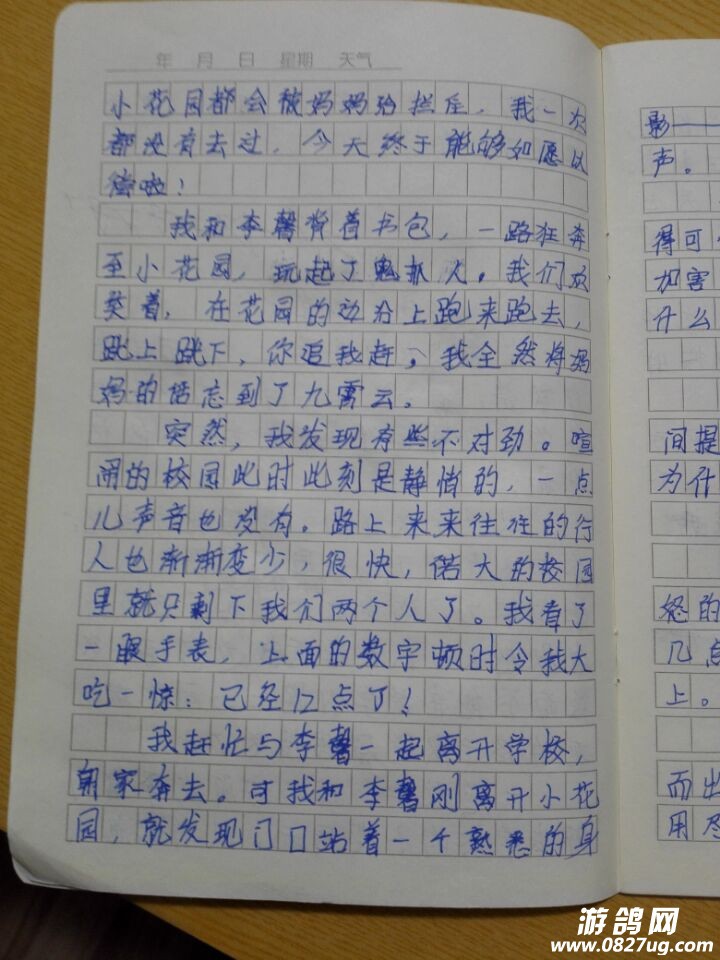 年 月 日 星期 天气
小花园都会被妈妈给拦住，我一次
都没有去过，今天终于能够如愿以
偿啦！
我和李馨背着书包，一路狂奔
至小花园，玩起了鬼抓人。我们欢
笑着，在花园的边分上跑来跑去，
跳上跳下，你追我赶，我全然将妈
妈的话忘到了九霄云。
突然，我发现有些不对劲。喧
闹的校园此时此刻是静悄的，一点
儿声音也没有。路上来来往往的行
人也渐渐变少，很快，偌大的校园
里就只剩下我们两个人了。我看了
一眼手表，上面的数字顿时令我大
吃一惊：已经12点了！
我赶忙与李馨一起离开学校，
朝家奔去。可我和李馨刚离开小花
园，就发现门口站着一个熟悉的身
影——
声。
得可
加害
什么
间提
为什
怒的
几点
上。
而出
用尽
游鸽网
www.0827ug.com